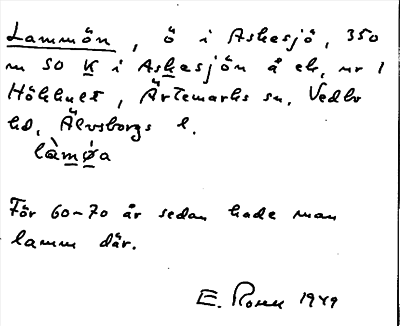 Lammön, ö i Askesjö, 350
m SO K i Askesjön å ek. nr 1
Hökhult, Ärtemarks sn. Vedbo
hd, Älvsborgs l.
làmøa
För 60-70 år sedan hade man
lamm där.
E. 1949